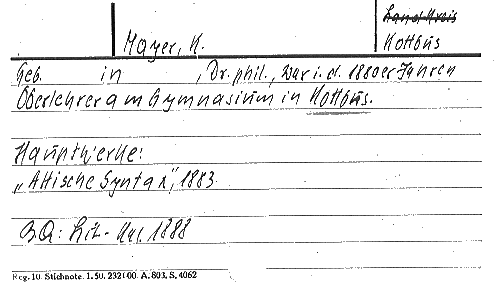 Land-Kreis
Mayer, K. Kottbus
Geb. in , Dr. phil., war i. d. 1880er Jahren
Oberlehrer am Gymnasium in Kottbus.
Hauptwerke:
„Attische Syntax", 1883.
BQ: Lit.- 1888
Reg. 10. Stichnote. 1. 50. 232100. A. 803. S. 4062